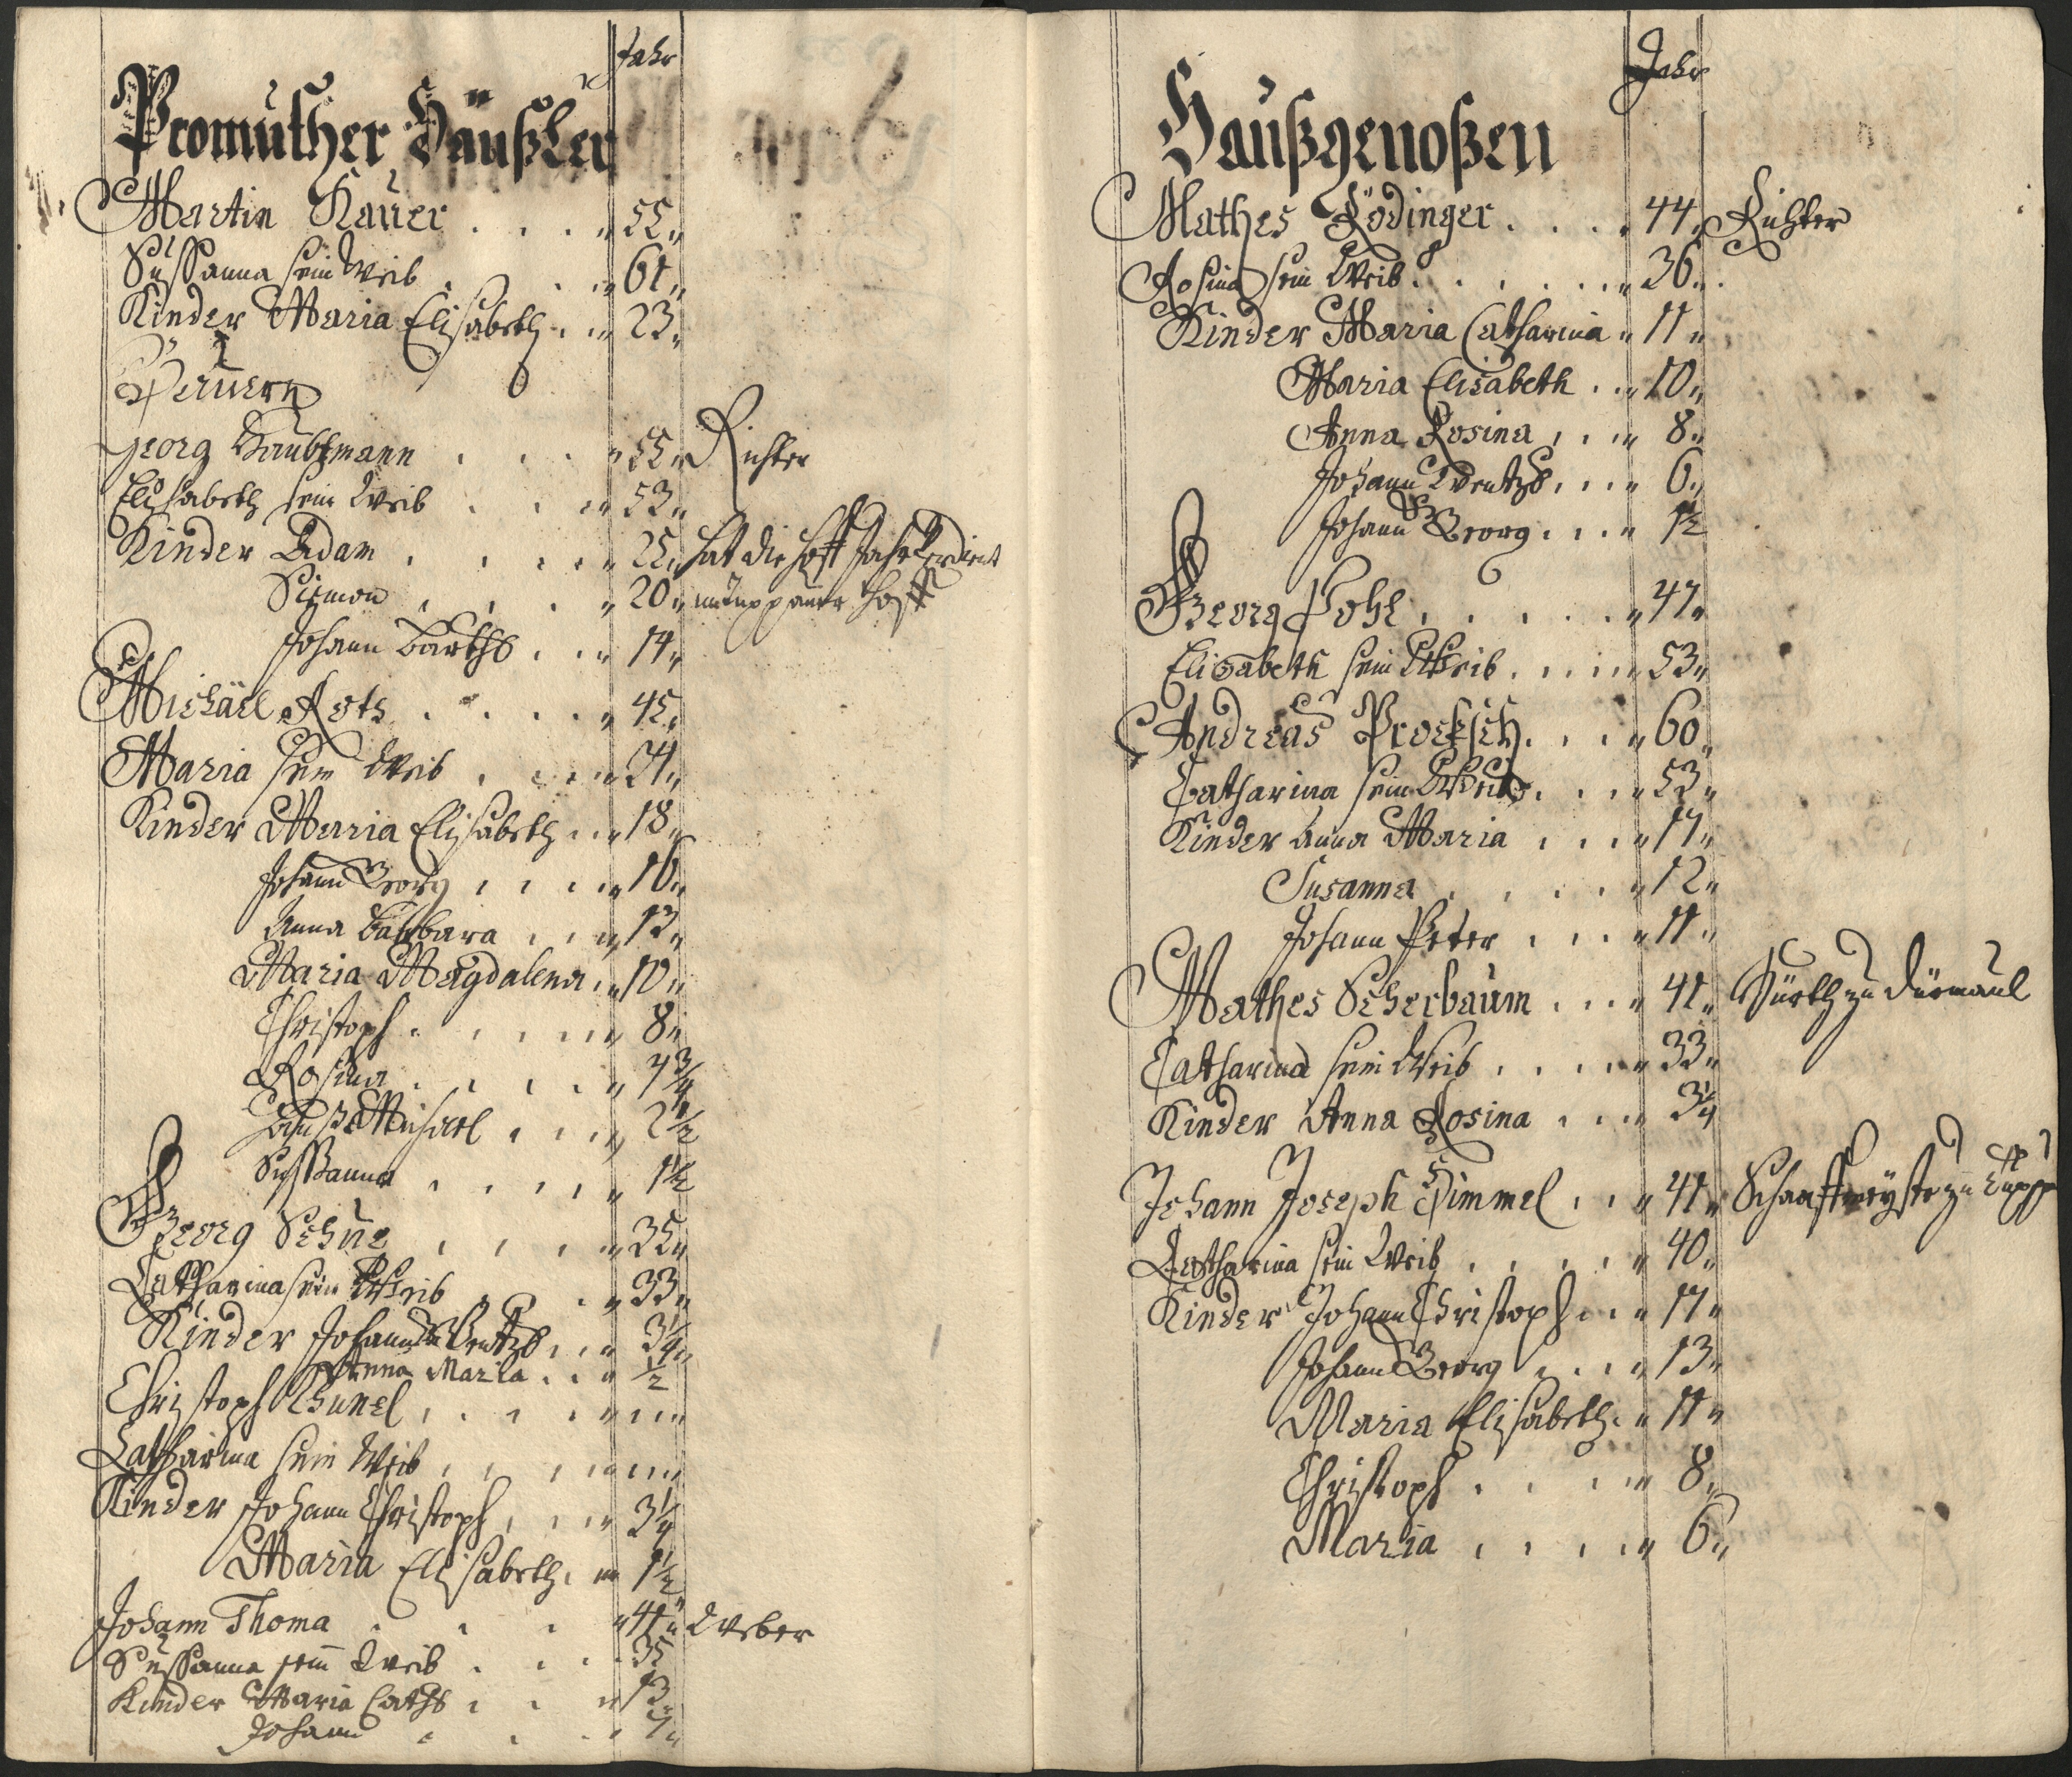 Jahr
Promuther Häußler
Martin Kauer 55
Sußanna sein Weib 61
Kinder Maria Elisabeth 23
Georg Haubtmann 55 Richter
Elisabeth sein Weib 53
Kinder Adam 25 hat die Hoff Jahr verdient
Siemon 20
Johann Barthl 14
Michäel Rots 45
Maria sein Weib
Kinder Maria Elisabeth 18
Johann Georg 16
Anna Barbara 13
Maria Magdalena 10
Christoph 8
Rosina
Michael 2 1/2
Sußanna 1 1/2
Georg 35
Catharina sein Weib 33
Kinder Johann Wentzl 3 1/4
Anna Maria 1/2
Christoph
Catharina sein Weib
Kinder Johann Christoph 3 1/4
Maria Elisabeth 1 1/2
Johann Thoma 41 Weber
Sußanna sein Weib 35
Kinder Maria Cathl 13
Johann 7
Jahr
Haußgenoßen
Mathes Rödinger 44 Richter
Rosina sein Weib 36
Kinder Maria Catharina 11
Maria Elisabeth 10
Anna Rosina 8
Johann Wentzl 6
Johann Georg 1 1/2
Georg Pohl 47
Elisabeth sein Weib 53
Andreas Procksch 60
Catharina sein Weib 53
Kinder Anna Maria 17
Susanna 12
Johann Peter 11
Mathes Scherbaum 41 Würth zu Dürmaul
Catharina sein Weib 33
Kinder Anna Rosina 3/4
Johann Joseph Himmel 41 Schaffmeyster zu
Catharina sein Weib 40
Kinder Johann Christoph 17
Johann Georg 13
Maria Elisabeth 11
Christoph 8
Maria 6